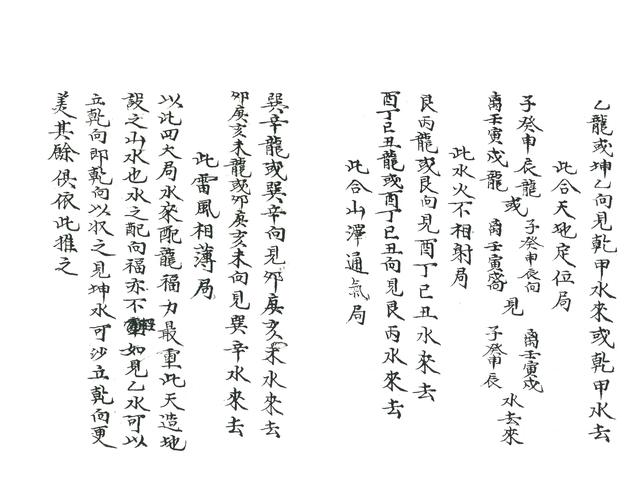 乙龍或坤乙向見乾甲水來或乾甲水去
此合天地定位局
子癸申辰龍或子癸申辰向見离壬寅戌水去來
离壬寅戌龍 离壬寅戌向 子癸申辰
此水火不相射局
艮丙龍或艮向見酉丁巳丑水來去
酉丁巳丑龍或酉丁巳丑向見艮丙水來去
此合山澤通氣局
巽辛龍或巽辛向見卯庚亥未水來去
卯庚亥未龍或卯庚亥未向見巽辛水來去
此雷風相薄局
以此四大局水來配龍福力最重此天造地
設之山水也水之配向福亦不輕如見乙水可以
立乾向即乾向以収之見坤水可沙立乾向更
美其餘俱依此推之